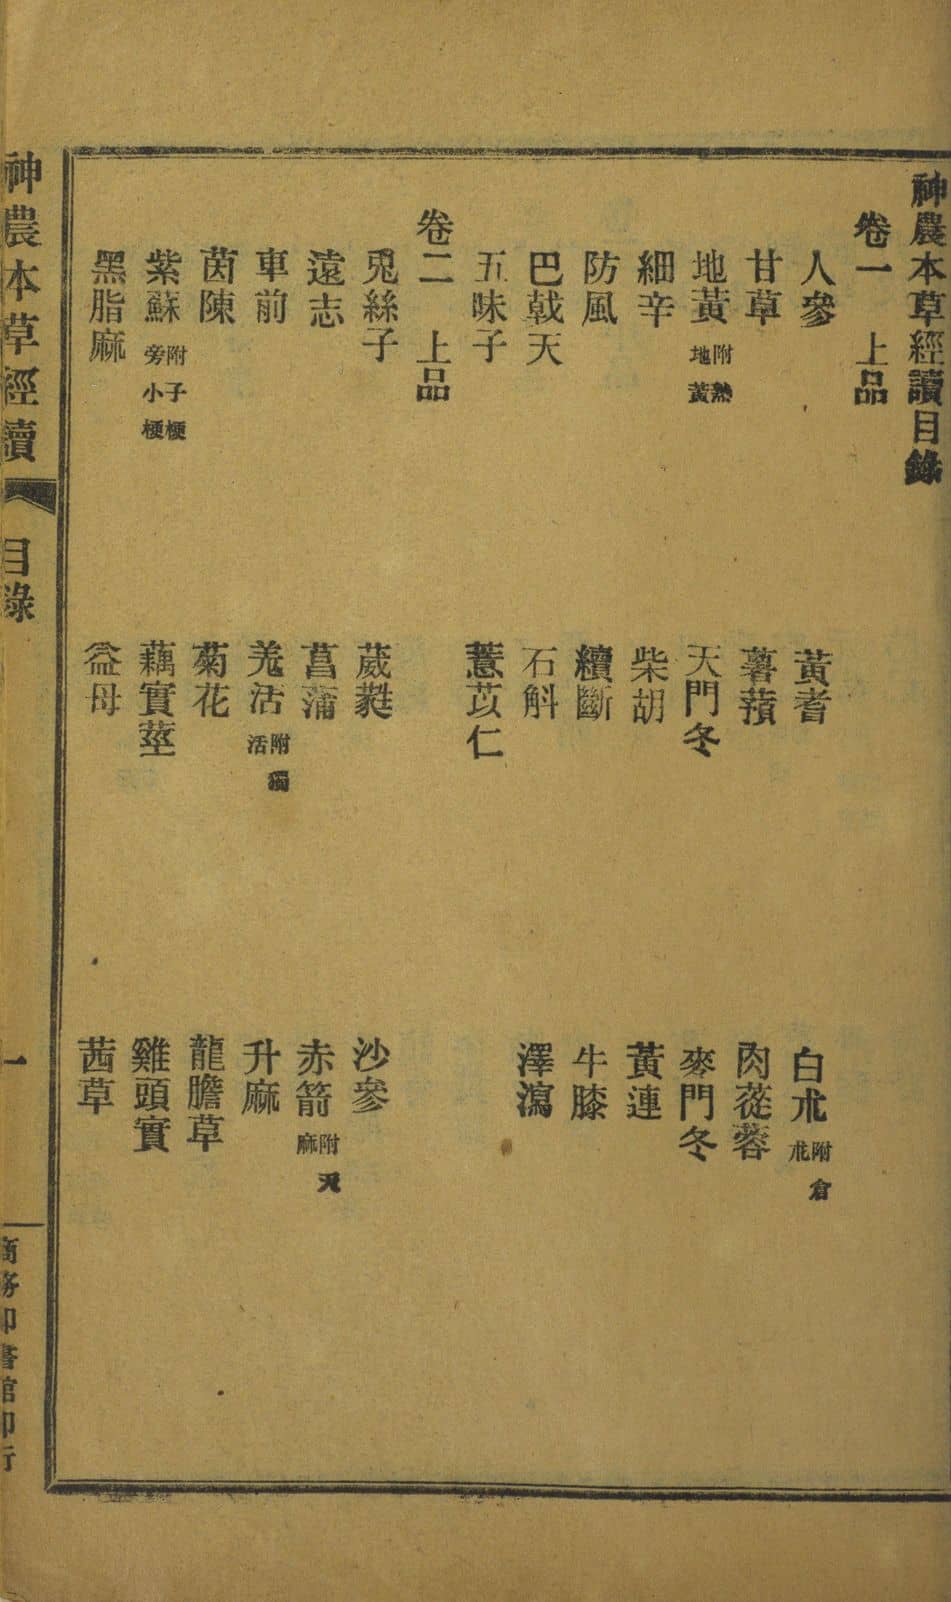 神農本草經讀目錄
卷一　上品
人參　黃耆　白朮附倉朮
甘草　薯蕷　肉蓯蓉
地黃附熟地黃　天門冬　麥門冬
細辛　柴胡　黃連
防風　續斷　牛膝
巴戟天　石斛　澤瀉
五味子　薏苡仁
卷二　上品
兎絲子　葳蕤　沙參
遠志　菖蒲　赤箭附天麻
車前　羗活附獨活　升麻
茵陳　菊花　龍膽草
紫蘇附子梗旁小梗　藕實莖　雞頭實
黑脂麻　益母　茜草
神農本草經讀　目錄　一　商務印書館印行